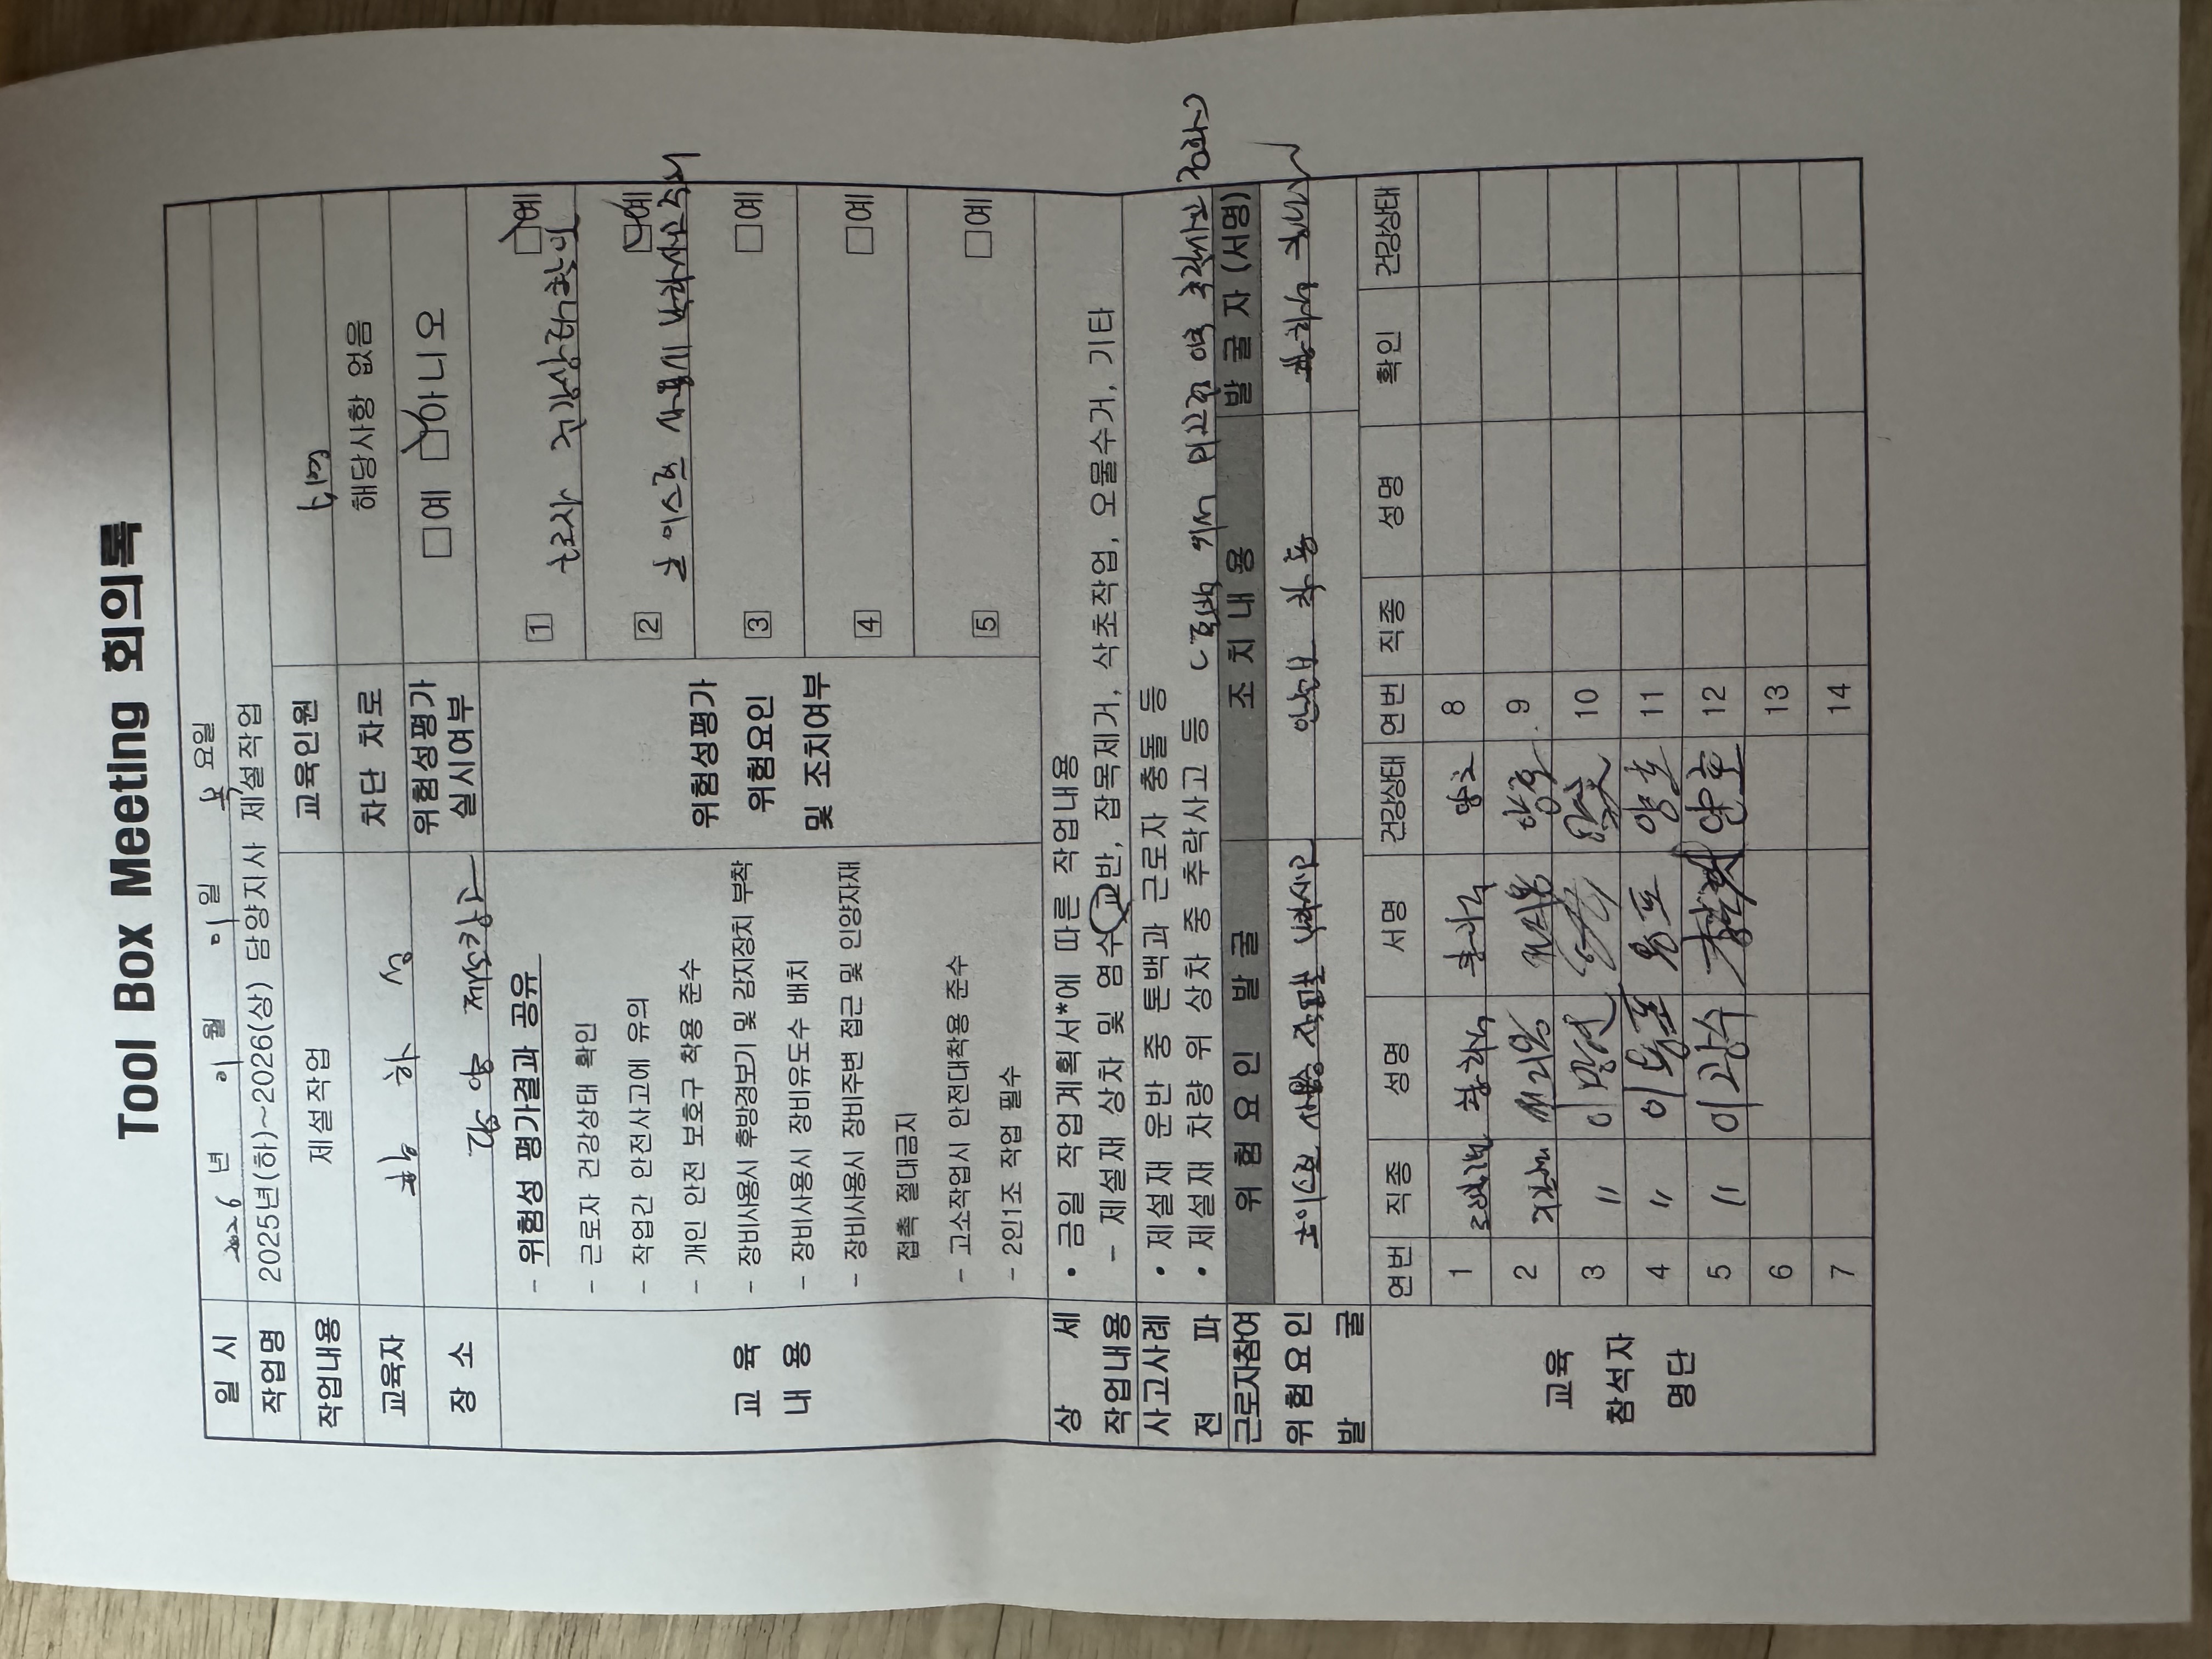 Tool Box Meeting 회의록
일 시 2026 년 01 월 01 일 목 요일
작업명 2025년(하)~2026(상) 담양지사 제설작업
작업내용 제설작업 교육인원 5명
교육자 차단 차로 해당사항 없음
장 소 담양 제설창고 위험성평가 실시여부 □예 ☑아니오
교 육 내 용
- 위험성 평가결과 공유
- 근로자 건강상태 확인
- 작업간 안전사고에 유의
- 개인 안전 보호구 착용 준수
- 장비사용시 후방경보기 및 감지장치 부착
- 장비사용시 장비유도수 배치
- 장비사용시 장비주변 접근 및 인양자재
접촉 절대금지
- 고소작업시 안전대착용 준수
- 2인1조 작업 필수
위험성평가
위험요인
및 조치여부
1 근로자 건강상태확인 ☑예
2 호이스트 사용시 낙하사고주의 ☑예
3 □예
4 □예
5 □예
상 세 작업내용
• 금일 작업계획서*에 따른 작업내용
- 제설재 상차 및 염수교반, 잡목제거, 삭초작업, 오물수거, 기타
사고사례 전 파
• 제설재 운반 중 톤백과 근로자 충돌 등
• 제설재 차량 위 상차 중 추락사고 등
근로자참여 위험요인 발 굴
위 험 요 인 발 굴 조 치 내 용 발 굴 자 (서명)
호이스트 사용중 낙하사고 안전모 착용
교육 참석자 명단
연번 직종 성명 서명 건강상태 연번 직종 성명 확인 건강상태
1 양호 8
2 양호 9
3 〃 10
4 〃 양호 11
5 〃 이광수 양호 12
6 13
7 14